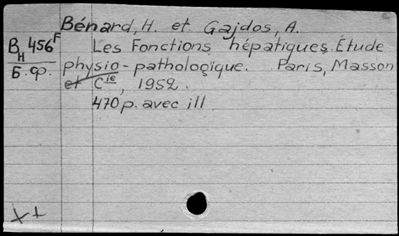 Bénard, H. et Gajdos, A.
BH 456F Les Fonctions hépatiques. Étude
Б.ф. physio-pathologique. Paris, Masson
et Cie, 1952.
470 p. avec ill